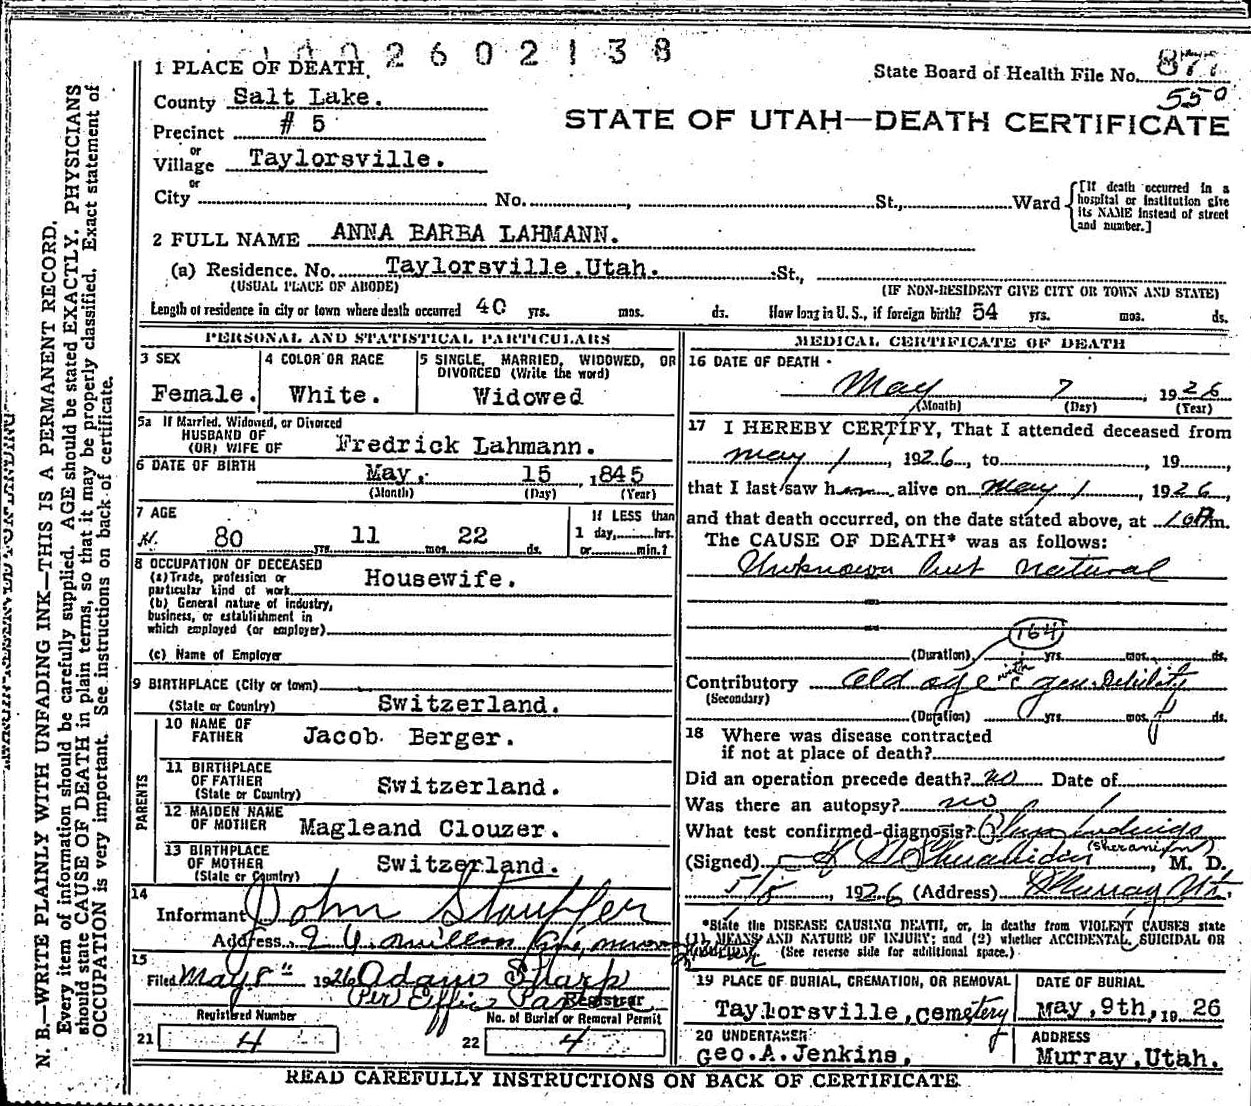 2602138
1 PLACE OF DEATH
State Board of Health File No. 877
550
County Salt Lake.
STATE OF UTAH—DEATH CERTIFICATE
Precinct # 5
or
Village Taylorsville.
or
City No. , St., Ward
[If death occurred in a hospital or institution give its NAME instead of street and number.]
2 FULL NAME ANNA BARBA LAHMANN.
(a) Residence. No. Taylorsville.Utah. St.,
(USUAL PLACE OF ABODE) (IF NON-RESIDENT GIVE CITY OR TOWN AND STATE)
Length of residence in city or town where death occurred 40 yrs. mos. ds. How long in U. S., if foreign birth? 54 yrs. mos. ds.
PERSONAL AND STATISTICAL PARTICULARS
3 SEX
Female.
4 COLOR OR RACE
White.
5 SINGLE, MARRIED, WIDOWED, OR
DIVORCED (Write the word)
Widowed
5a If Married, Widowed, or Divorced
HUSBAND OF
(OR) WIFE OF Fredrick Lahmann.
6 DATE OF BIRTH May. 15 , 1845
(Month) (Day) (Year)
7 AGE
80 yrs. 11 mos. 22 ds.
If LESS than
1 day, hrs.
or min.?
8 OCCUPATION OF DECEASED
(a) Trade, profession or
particular kind of work Housewife.
(b) General nature of industry,
business, or establishment in
which employed (or employer)
(c) Name of Employer
9 BIRTHPLACE (City or town)
(State or Country) Switzerland.
PARENTS
10 NAME OF
FATHER Jacob Berger.
11 BIRTHPLACE
OF FATHER
(State or Country) Switzerland.
12 MAIDEN NAME
OF MOTHER Magleand Clouzer.
13 BIRTHPLACE
OF MOTHER
(State or Country) Switzerland.
14
Informant John Stauffer
Address
15
Filed May 8" 1926 Adam Sharp
(Per) Effie
Registrar
Registered Number
21 4
No. of Burial or Removal Permit
22 4
MEDICAL CERTIFICATE OF DEATH
16 DATE OF DEATH
May 7 , 1926
(Month) (Day) (Year)
17 I HEREBY CERTIFY, That I attended deceased from
May 1 , 1926, to , 19 ,
that I last saw h alive on May 1 , 1926,
and that death occurred, on the date stated above, at 10 P m.
The CAUSE OF DEATH* was as follows:
Unknown but natural
164
(Duration) yrs. mos. ds.
Contributory old age with gen. debility
(Secondary)
(Duration) yrs. mos. ds.
18 Where was disease contracted
if not at place of death?
Did an operation precede death? no Date of
Was there an autopsy? no
What test confirmed diagnosis?
(Signed) , M. D.
5/8 1926 (Address) Murray Ut.
*State the DISEASE CAUSING DEATH, or, in deaths from VIOLENT CAUSES state
(1) MEANS AND NATURE OF INJURY; and (2) whether ACCIDENTAL, SUICIDAL OR
HOMICIDAL (See reverse side for additional space.)
19 PLACE OF BURIAL, CREMATION, OR REMOVAL
Taylorsville, cemetery
DATE OF BURIAL
May, 9th, 19 26
20 UNDERTAKER
Geo.A.Jenkins,
ADDRESS
Murray,Utah.
READ CAREFULLY INSTRUCTIONS ON BACK OF CERTIFICATE
N. B.—WRITE PLAINLY WITH UNFADING INK—THIS IS A PERMANENT RECORD.
Every item of information should be carefully supplied. AGE should be stated EXACTLY. PHYSICIANS
should state CAUSE OF DEATH in plain terms, so that it may be properly classified. Exact statement of
OCCUPATION is very important. See instructions on back of certificate.